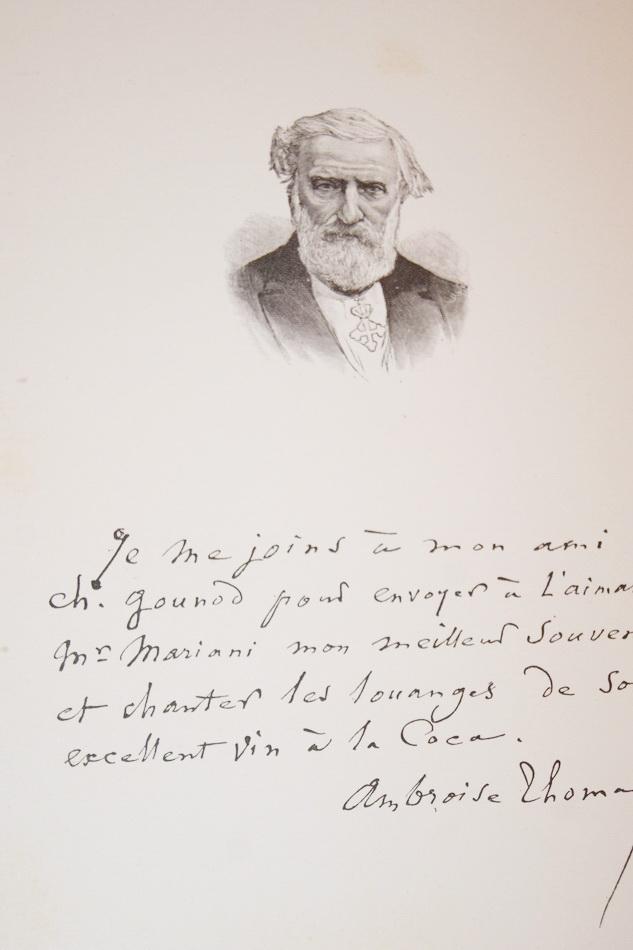 Je me joins à mon ami
ch. Gounod pour envoyer à L'aima
Mr Mariani mon meilleur Souve
et chanter les louanges de so
excellent Vin à la Coca.
Ambroise Thoma